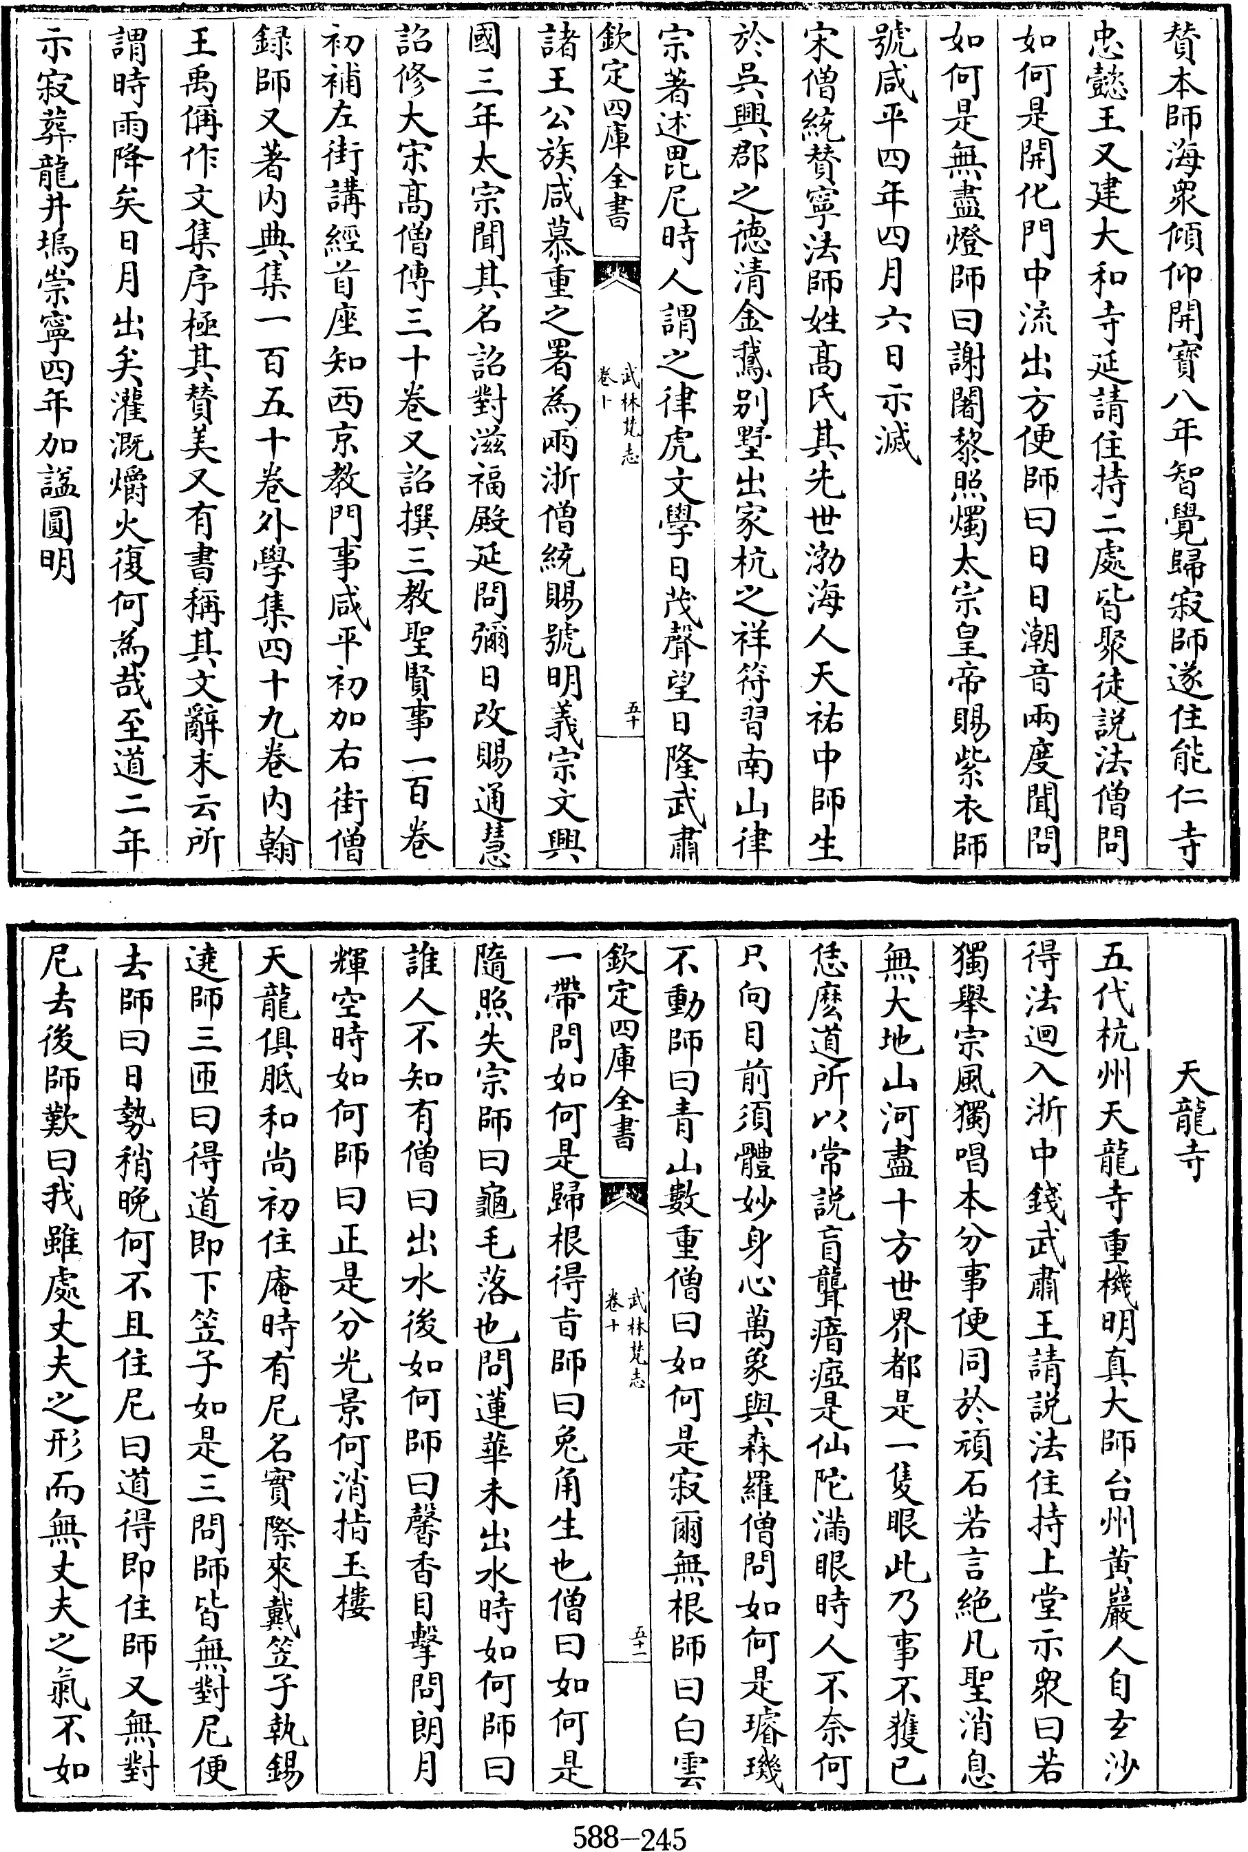 賛本師海衆傾仰開寶八年智覺歸寂師遂住能仁寺
忠懿王又建大和寺延請住持二處皆聚徒説法僧問
如何是開化門中流出方便師曰日日潮音兩度聞問
如何是無盡燈師曰謝闍黎照燭太宗皇帝賜紫衣師
號咸平四年四月六日示滅
宋僧統賛寧法師姓髙氏其先世渤海人天祐中師生
於吳興郡之德清金鵞别墅出家杭之祥符習南山律
宗著述毘尼時人謂之律虎文學日茂聲望日隆武肅
欽定四庫全書
武林梵志
卷十
五十
諸王公族咸慕重之署為兩浙僧統賜號明義宗文興
國三年太宗聞其名詔對滋福殿延問彌日改賜通慧
詔修大宋髙僧傳三十卷又詔撰三教聖賢事一百卷
初補左街講經首座知西京教門事咸平初加右街僧
録師又著内典集一百五十卷外學集四十九卷内翰
王禹偁作文集序極其賛美又有書稱其文辭末云所
謂時雨降矣日月出矣灌溉爝火復何為哉至道二年
示寂葬龍井塢崇寧四年加諡圓明
天龍寺
五代杭州天龍寺重機明真大師台州黄巖人自玄沙
得法迴入浙中錢武肅王請説法住持上堂示衆曰若
獨舉宗風獨唱本分事便同於頑石若言絶凡聖消息
無大地山河盡十方世界都是一隻眼此乃事不獲已
恁麽道所以常説盲聾瘖瘂是仙陀滿眼時人不奈何
只向目前須體妙身心萬象與森羅僧問如何是璿璣
不動師曰青山數重僧曰如何是寂爾無根師曰白雲
欽定四庫全書
武林梵志
卷十
五十一
一帶問如何是歸根得旨師曰兔角生也僧曰如何是
隨照失宗師曰龜毛落也問蓮華未出水時如何師曰
誰人不知有僧曰出水後如何師曰馨香目擊問朗月
輝空時如何師曰正是分光景何消指玉樓
天龍俱胝和尚初住庵時有尼名實際來戴笠子執錫
遶師三匝曰得道即下笠子如是三問師皆無對尼便
去師曰日勢稍晚何不且住尼曰道得即住師又無對
尼去後師歎曰我雖處丈夫之形而無丈夫之氣不如
588-245